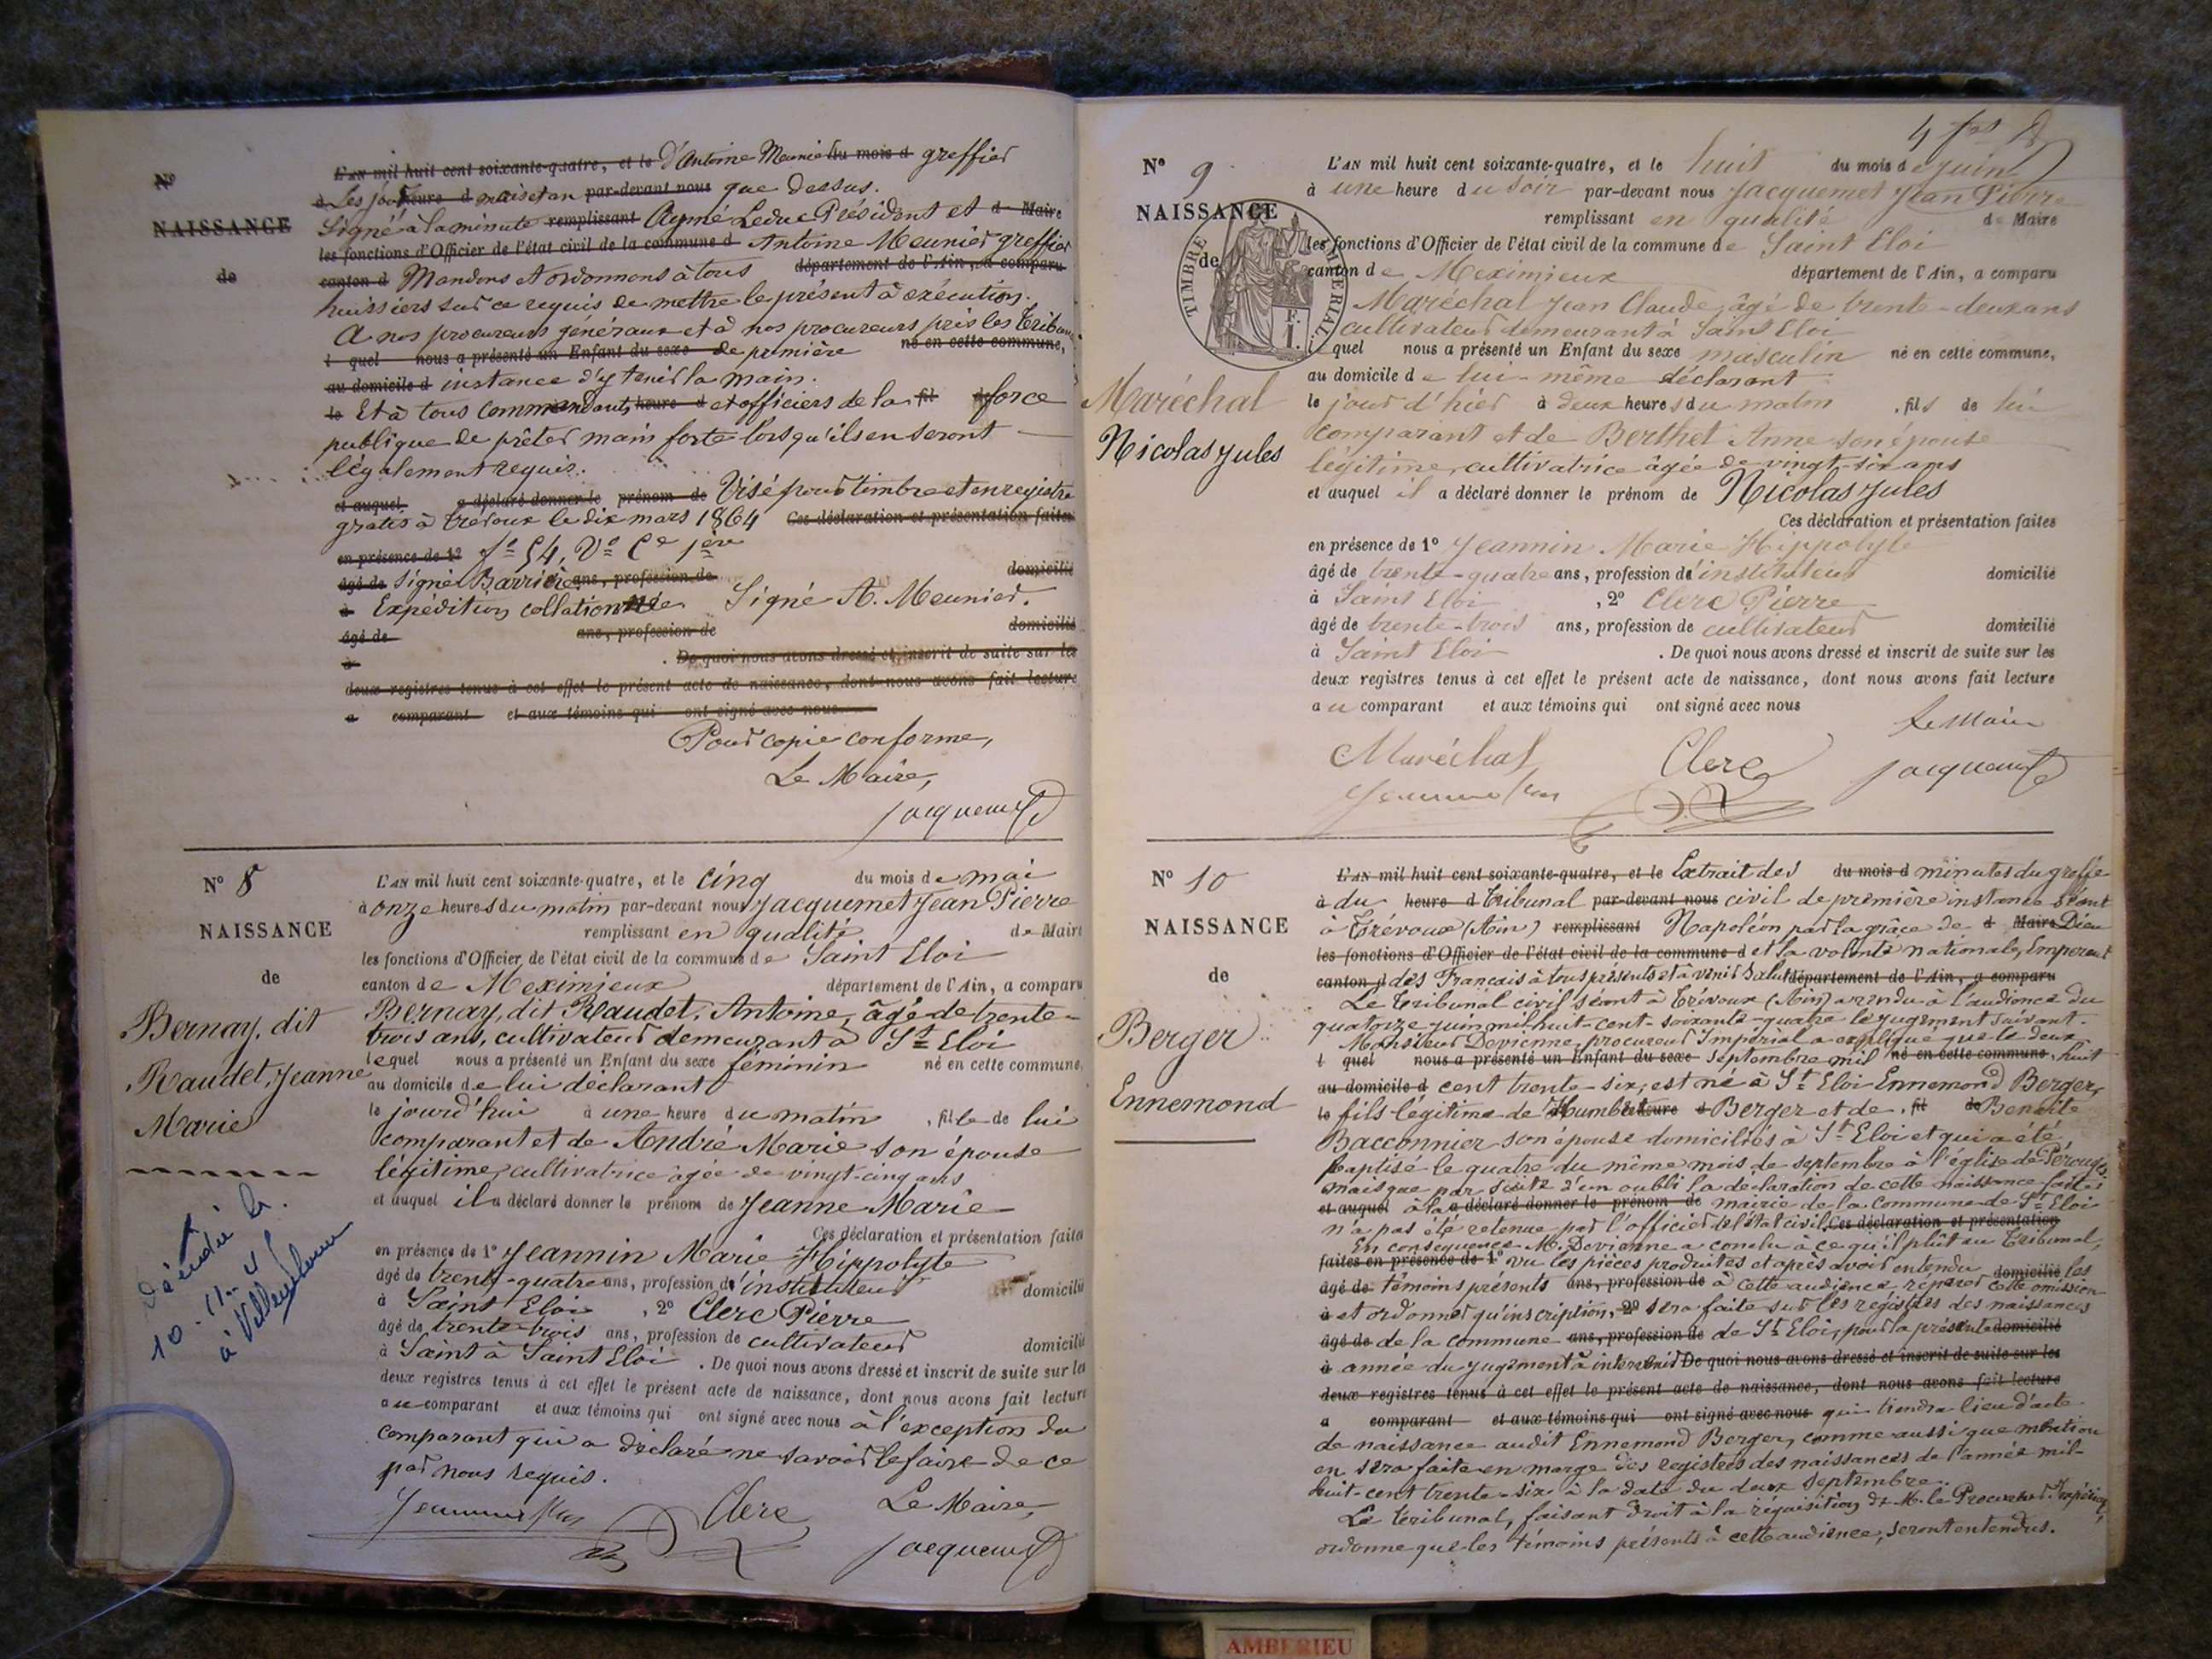 N°
NAISSANCE
de
L'AN mil huit cent soixante-quatre, et le D'Antoine Meunier du mois d greffier
à Les jour heure d mois et an par-devant nous que dessus.
Signé à la minute remplissant Aymé Leduc Président et d Maire
les fonctions d'Officier de l'état civil de la commune d Antoine Meunier greffier
canton d Mandons et ordonnons à tous département de l'Ain, a comparu
huissiers sur ce requis de mettre le présent à exécution.
A nos procureurs généraux et à nos procureurs près les tribunaux
l quel nous a présenté un Enfant du sexe de première né en cette commune,
au domicile d instance d'y tenir la main.
le Et à tous commandants heure d et officiers de la fil de force
publique de prêter main forte lorsqu'ils en seront
légalement requis.
et auquel a déclaré donner le prénom de Visé pour timbre et enregistré
gratis à Trévoux le dix mars 1864 Ces déclaration et présentation faites
en présence de 1° f° 54, V° C° 1ère
âgé de Signé Barrière ans, profession de domicilié
à Expédition collationnée Signé A. Meunier.
âgé de ans, profession de domicilié
à . De quoi nous avons dressé et inscrit de suite sur les
deux registres tenus à cet effet le présent acte de naissance, dont nous avons fait lecture
a comparant et aux témoins qui ont signé avec nous
Pour copie conforme,
Le Maire,
Jacquemet
N° 8
NAISSANCE
de
Bernay, dit
Raudet, Jeanne
Marie
décédée le
10-11-4
à Villeurbanne
L'AN mil huit cent soixante-quatre, et le cinq du mois de mai
à onze heures du matin par-devant nous Jacquemet Jean Pierre
remplissant en qualité de Maire
les fonctions d'Officier de l'état civil de la commune de Saint Eloi
canton de Meximieux département de l'Ain, a comparu
Bernay, dit Raudet, Antoine, âgé de trente-
trois ans, cultivateur demeurant à St Eloi
lequel nous a présenté un Enfant du sexe féminin né en cette commune,
au domicile de lui déclarant
le jourd'hui à une heure du matin , fille de lui
comparant et de André Marie son épouse
légitime, cultivatrice âgée de vingt-cinq ans
et auquel il a déclaré donner le prénom de Jeanne Marie
Ces déclaration et présentation faites
en présence de 1° Jeannin Marie Hippolyte
âgé de trente-quatre ans, profession d'instituteur domicilié
à Saint Eloi , 2° Clerc Pierre
âgé de trente-trois ans, profession de cultivateur domicilié
à Saint à Saint Eloi . De quoi nous avons dressé et inscrit de suite sur les
deux registres tenus à cet effet le présent acte de naissance, dont nous avons fait lecture
au comparant et aux témoins qui ont signé avec nous à l'exception du
comparant qui a déclaré ne savoir le faire de ce
par nous requis.
Clerc Le Maire,
Jacquemet
4
N° 9
NAISSANCE
de
TIMBRE IMPÉRIAL
1 F.
Maréchal
Nicolas Jules
L'AN mil huit cent soixante-quatre, et le huit du mois de juin
à une heure du soir par-devant nous Jacquemet Jean Pierre
remplissant en qualité de Maire
les fonctions d'Officier de l'état civil de la commune de Saint Eloi
canton de Meximieux département de l'Ain, a comparu
Maréchal Jean Claude, âgé de trente-deux ans
cultivateur demeurant à Saint Eloi
lequel nous a présenté un Enfant du sexe masculin né en cette commune,
au domicile de lui-même déclarant
le jour d'hier à deux heures du matin , fils de lui
comparant et de Berthet Anne son épouse
légitime, cultivatrice âgée de vingt-six ans
et auquel il a déclaré donner le prénom de Nicolas Jules
Ces déclaration et présentation faites
en présence de 1° Jeannin Marie Hippolyte
âgé de trente-quatre ans, profession d'instituteur domicilié
à Saint Eloi , 2° Clerc Pierre
âgé de trente-trois ans, profession de cultivateur domicilié
à Saint Eloi . De quoi nous avons dressé et inscrit de suite sur les
deux registres tenus à cet effet le présent acte de naissance, dont nous avons fait lecture
au comparant et aux témoins qui ont signé avec nous
Le Maire
Maréchal Clerc Jacquemet
N° 10
NAISSANCE
de
Berger
Ennemond
L'AN mil huit cent soixante-quatre, et le Extrait des du mois d minutes du greffe
à du heure d tribunal par-devant nous civil de première instance séant
à Trévoux (Ain) remplissant Napoléon par la grâce de d Maire Dieu
les fonctions d'Officier de l'état civil de la commune d et la volonté nationale, Empereur
canton d des Français à tous présents et à venir Salut département de l'Ain, a comparu
Le tribunal civil séant à Trévoux (Ain) a rendu à l'audience du
quatorze juin mil huit-cent-soixante-quatre le jugement suivant.
Monsieur Devienne, procureur Impérial a expliqué que le deux
l quel nous a présenté un Enfant du sexe septembre mil né en cette commune, huit
au domicile d cent trente-six, est né à St Eloi Ennemond Berger,
le fils légitime de Humbert heure d Berger et de , fil de Benoite
Bacconnier son épouse domiciliés à St Eloi et qui a été
baptisé le quatre du même mois de septembre à l'église de Pérouges
mais que par suite d'un oubli la déclaration de cette naissance faite
et auquel à la a déclaré donner le prénom de mairie de la commune de St Eloi
n'a pas été retenue par l'officier de l'état civil. Ces déclaration et présentation
En conséquence M. Devienne a conclu à ce qu'il plût au tribunal,
faites en présence de 1° vu les pièces produites et après avoir entendu les
âgé de témoins présents ans, profession de à cette audience, réparer domicilié cette omission
à et ordonner qu'inscription, 2° sera faite sur les registres des naissances
âgé de de la commune ans, profession de de St Eloi, pour la présente domicilié
à année du jugement à intervenir De quoi nous avons dressé et inscrit de suite sur les
deux registres tenus à cet effet le présent acte de naissance, dont nous avons fait lecture
a comparant et aux témoins qui ont signé avec nous qui tiendra lieu d'acte
de naissance audit Ennemond Berger, comme aussi que mention
en sera faite en marge des registres des naissances de l'année mil-
huit-cent trente-six à la date du deux septembre.
Le tribunal, faisant droit à la réquisition de M. le Procureur Impérial,
ordonne que les témoins présents à cette audience, seront entendus.
AMBERIEU